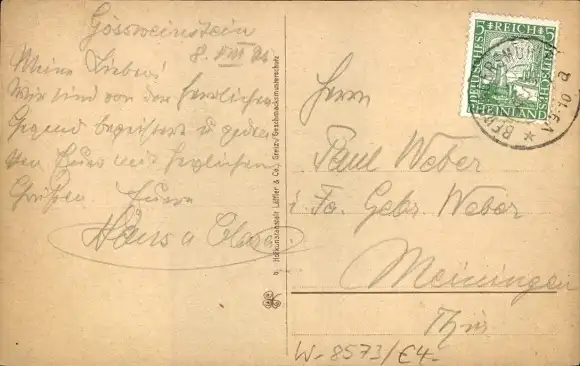 Gössweinstein
8. VIII 26
Meine Lieben!
Wir sind von der herrlichen
Gegend begeistert u. geden
ken Eurer mit herzlichen
Grüßen Eure
Hans u Clara
Hofkunstanstalt Löffler & Co., Greiz/ Geschmacksmusterschutz
DEUTSCHES REICH
5 5
RHEINLAND
Herrn
Paul Weber
i/ Fa. Gebr Weber
Meiningen
Thür
W-8573/€4-